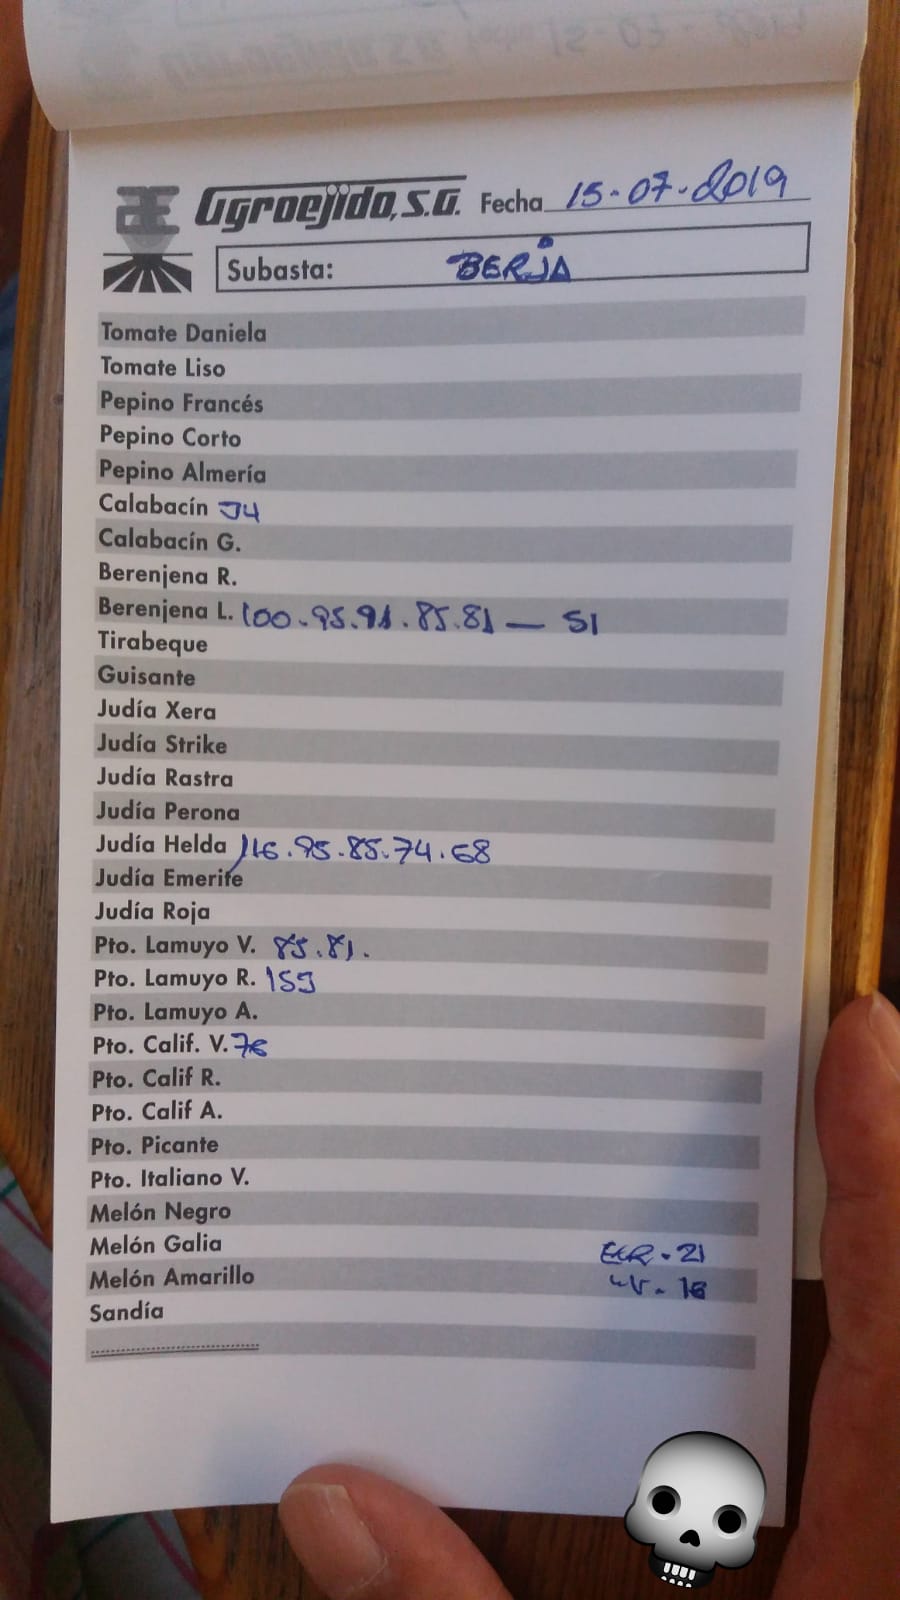 Agroejido, S.A. Fecha 15-07-2019
Subasta: BERJA
Tomate Daniela
Tomate Liso
Pepino Francés
Pepino Corto
Pepino Almería
Calabacín 34
Calabacín G.
Berenjena R.
Berenjena L. 100.95.91.85.81 — 51
Tirabeque
Guisante
Judía Xera
Judía Strike
Judía Rastra
Judía Perona
Judía Helda 116.95.85.74.68
Judía Emerite
Judía Roja
Pto. Lamuyo V. 85.81.
Pto. Lamuyo R. 159
Pto. Lamuyo A.
Pto. Calif. V. 76
Pto. Calif R.
Pto. Calif A.
Pto. Picante
Pto. Italiano V.
Melón Negro
Melón Galia
21
Melón Amarillo
Sandía